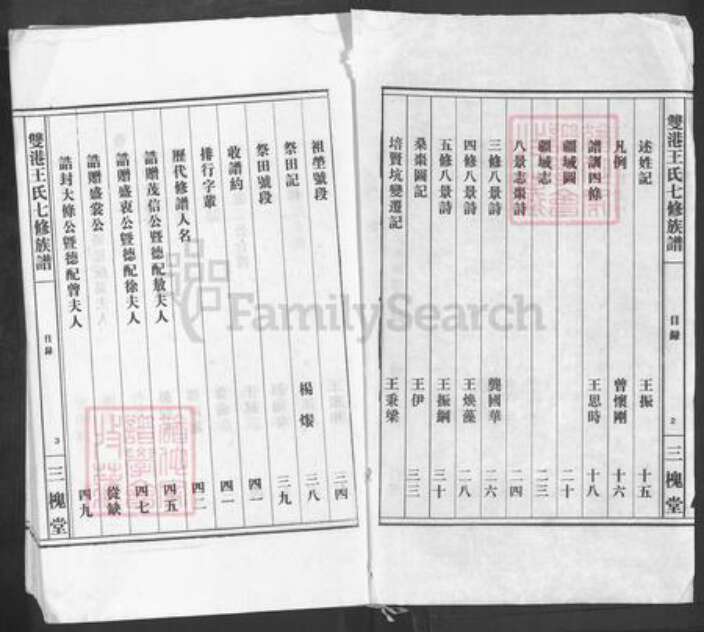 雙港王氏七修族譜 目錄 2 三槐堂
述姓記 王振 十五
凡例 曾懷剛 十六
譜訓四條 王思時 十八
疆域圖 二十
疆域志 二三
八景志棗詩 二四
三修八景詩 龔國華 二六
四修八景詩 王煥藻 二八
五修八景詩 王振綱 三十
桑棗園記 王伊 三三
培賢坑變遷記 王秉梁
祖塋號段 三四
祭田記 楊 三八
祭田號段 三九
收譜約 四一
排行字輩 四一
歷代修譜人名 四二
誥贈茂信公暨德配敖夫人 四五
誥贈盛衷公暨德配徐夫人 四七
誥贈盛裳公 從缺
誥封大條公暨德配曾夫人 四九
雙港王氏七修族譜 目錄 3 三槐堂
FamilySearch